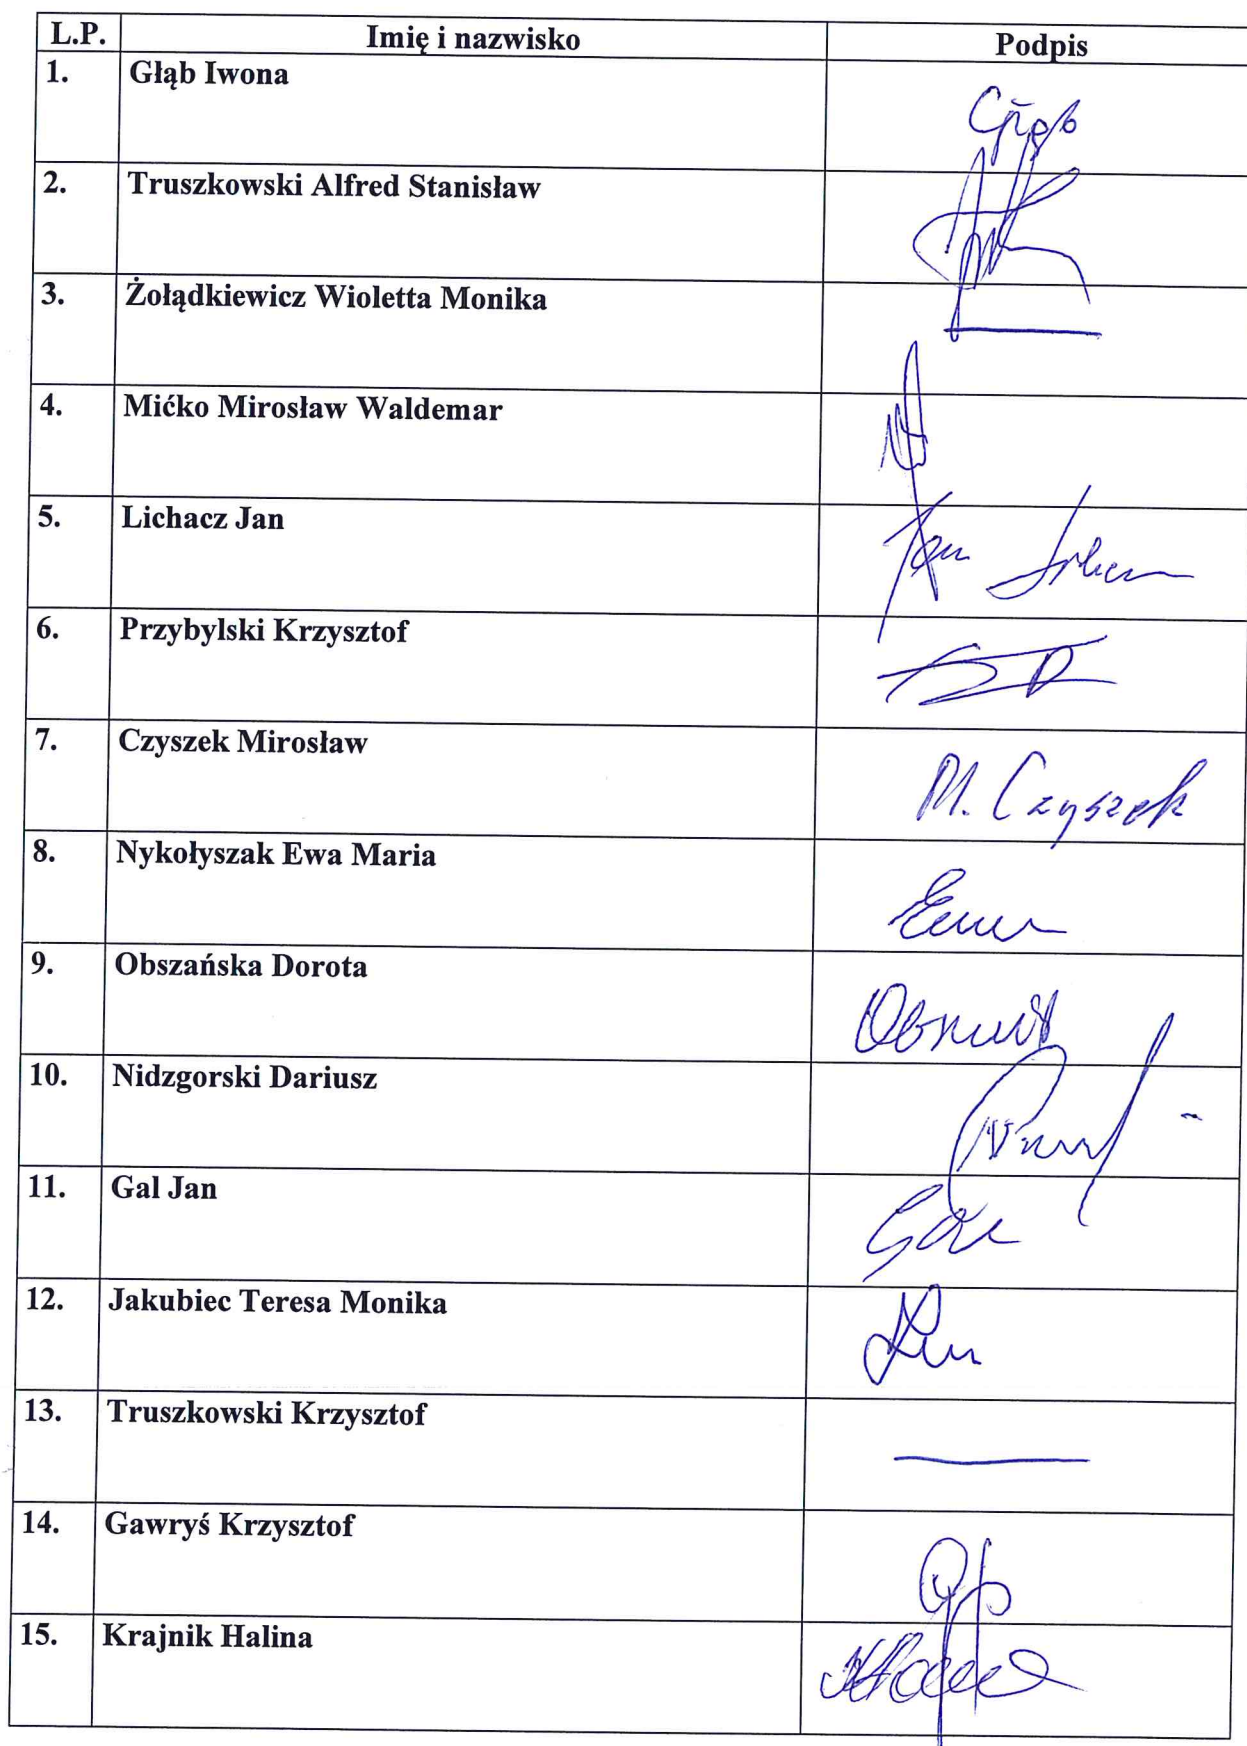 L.P. Imię i nazwisko Podpis
1. Głąb Iwona
Głąb
2. Truszkowski Alfred Stanisław
3. Żołądkiewicz Wioletta Monika
4. Mićko Mirosław Waldemar
5. Lichacz Jan
Jan
6. Przybylski Krzysztof
7. Czyszek Mirosław
M. Czyszek
8. Nykołyszak Ewa Maria
9. Obszańska Dorota
10. Nidzgorski Dariusz
11. Gal Jan
Gal
12. Jakubiec Teresa Monika
13. Truszkowski Krzysztof
14. Gawryś Krzysztof
15. Krajnik Halina